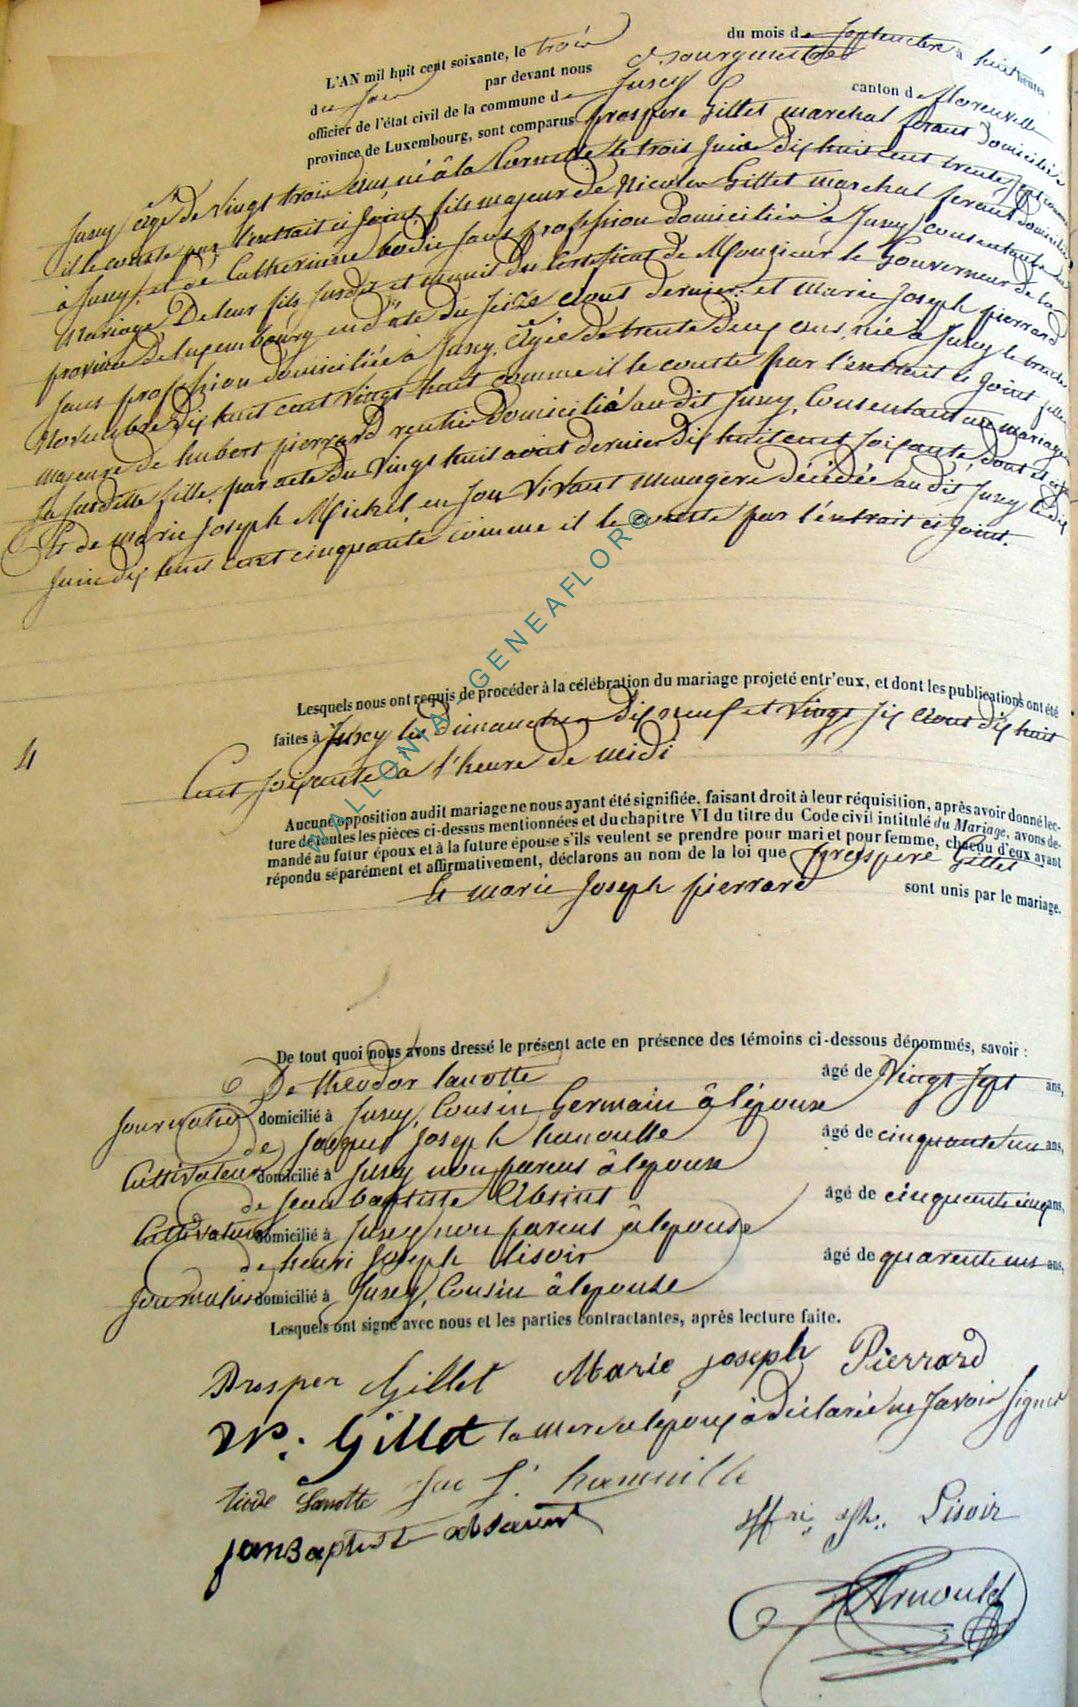 L'AN mil huit cent soixante, le trois du mois de Septembre à huit heures
du soir par devant nous Bourgmestre
officier de l'état civil de la commune de Jusey canton de florenville
province de Luxembourg, sont comparus prospere Gillet marchal ferant domicilié à
Jusey âgé de vingt trois ans, né à la le trois Juin dix huit cent trente sept comme
il le conste par l'extrait ci Joint fils majeur de Nicolas Gillet marchal ferant domicilié
à Jusey, et de Catherinne bodie sans profession domiciliée à Jusey consentants au
Mariage De leur fils susdit et munit du Certificat de Monsieur le Gouverneur de la
province de luxembourg en date du seize aout dernier. et marie Joseph pierrard
sans profession domiciliée à Jusey, âgée de trente deux ans, née à Jusey le trente
Novembre dix huit cent vingt huit comme il le conste par l'extrait ci Joint fille
majeure de hubert pierrard rentier Domicilié au dit Jusey, Consentant au mariage
de sa susditte fille, par acte du vingt huit aout dernier dix huit cent soixante dont
et de marie Joseph Michel en son vivant menagere décédée au dit Jusey le dix
Juin dix huit cent cinquante comme il le conste par l'extrait ci Joint.
WALLONIA - GENEAFLOR©
Lesquels nous ont requis de procéder à la célébration du mariage projeté entr'eux, et dont les publications ont été
faites à Jusey les dimanches dix neuf et vingt six aout dix huit
4
Cent soixante à l'heure de midi
Aucune opposition audit mariage ne nous ayant été signifiée, faisant droit à leur réquisition, après avoir donné lec-
ture de toutes les pièces ci-dessus mentionnées et du chapitre VI du titre du Code civil intitulé du Mariage, avons de-
mandé au futur époux et à la future épouse s'ils veulent se prendre pour mari et pour femme, chacun d'eux ayant
répondu séparément et affirmativement, déclarons au nom de la loi que prospere Gillet
et marie Joseph pierrard sont unis par le mariage.
De tout quoi nous avons dressé le présent acte en présence des témoins ci-dessous dénommés, savoir :
De théodor lanotte âgé de vingt sept ans,
Journalier domicilié à Jusey, Cousin Germain à l'épouse
de Jacques Joseph hanoulle âgé de cinquante un ans,
Cultivateur domicilié à Jusey non parent à l'epouse
de Jean baptiste Absint âgé de cinquante cinq ans,
Cultivateur domicilié à Jusey non parent à l'epouse
de henri Joseph lisoir âgé de quarente un ans,
Journalier domicilié à Jusey, Cousin à l'epouse
Lesquels ont signé avec nous et les parties contractantes, après lecture faite.
Prosper Gillet Marie joseph Pierrard
N. Gillet la mere de l'époux à déclaréé ne Savoir Signer
téode Lanotte Jac J.
jan Baptiste Lisoir
Arnould